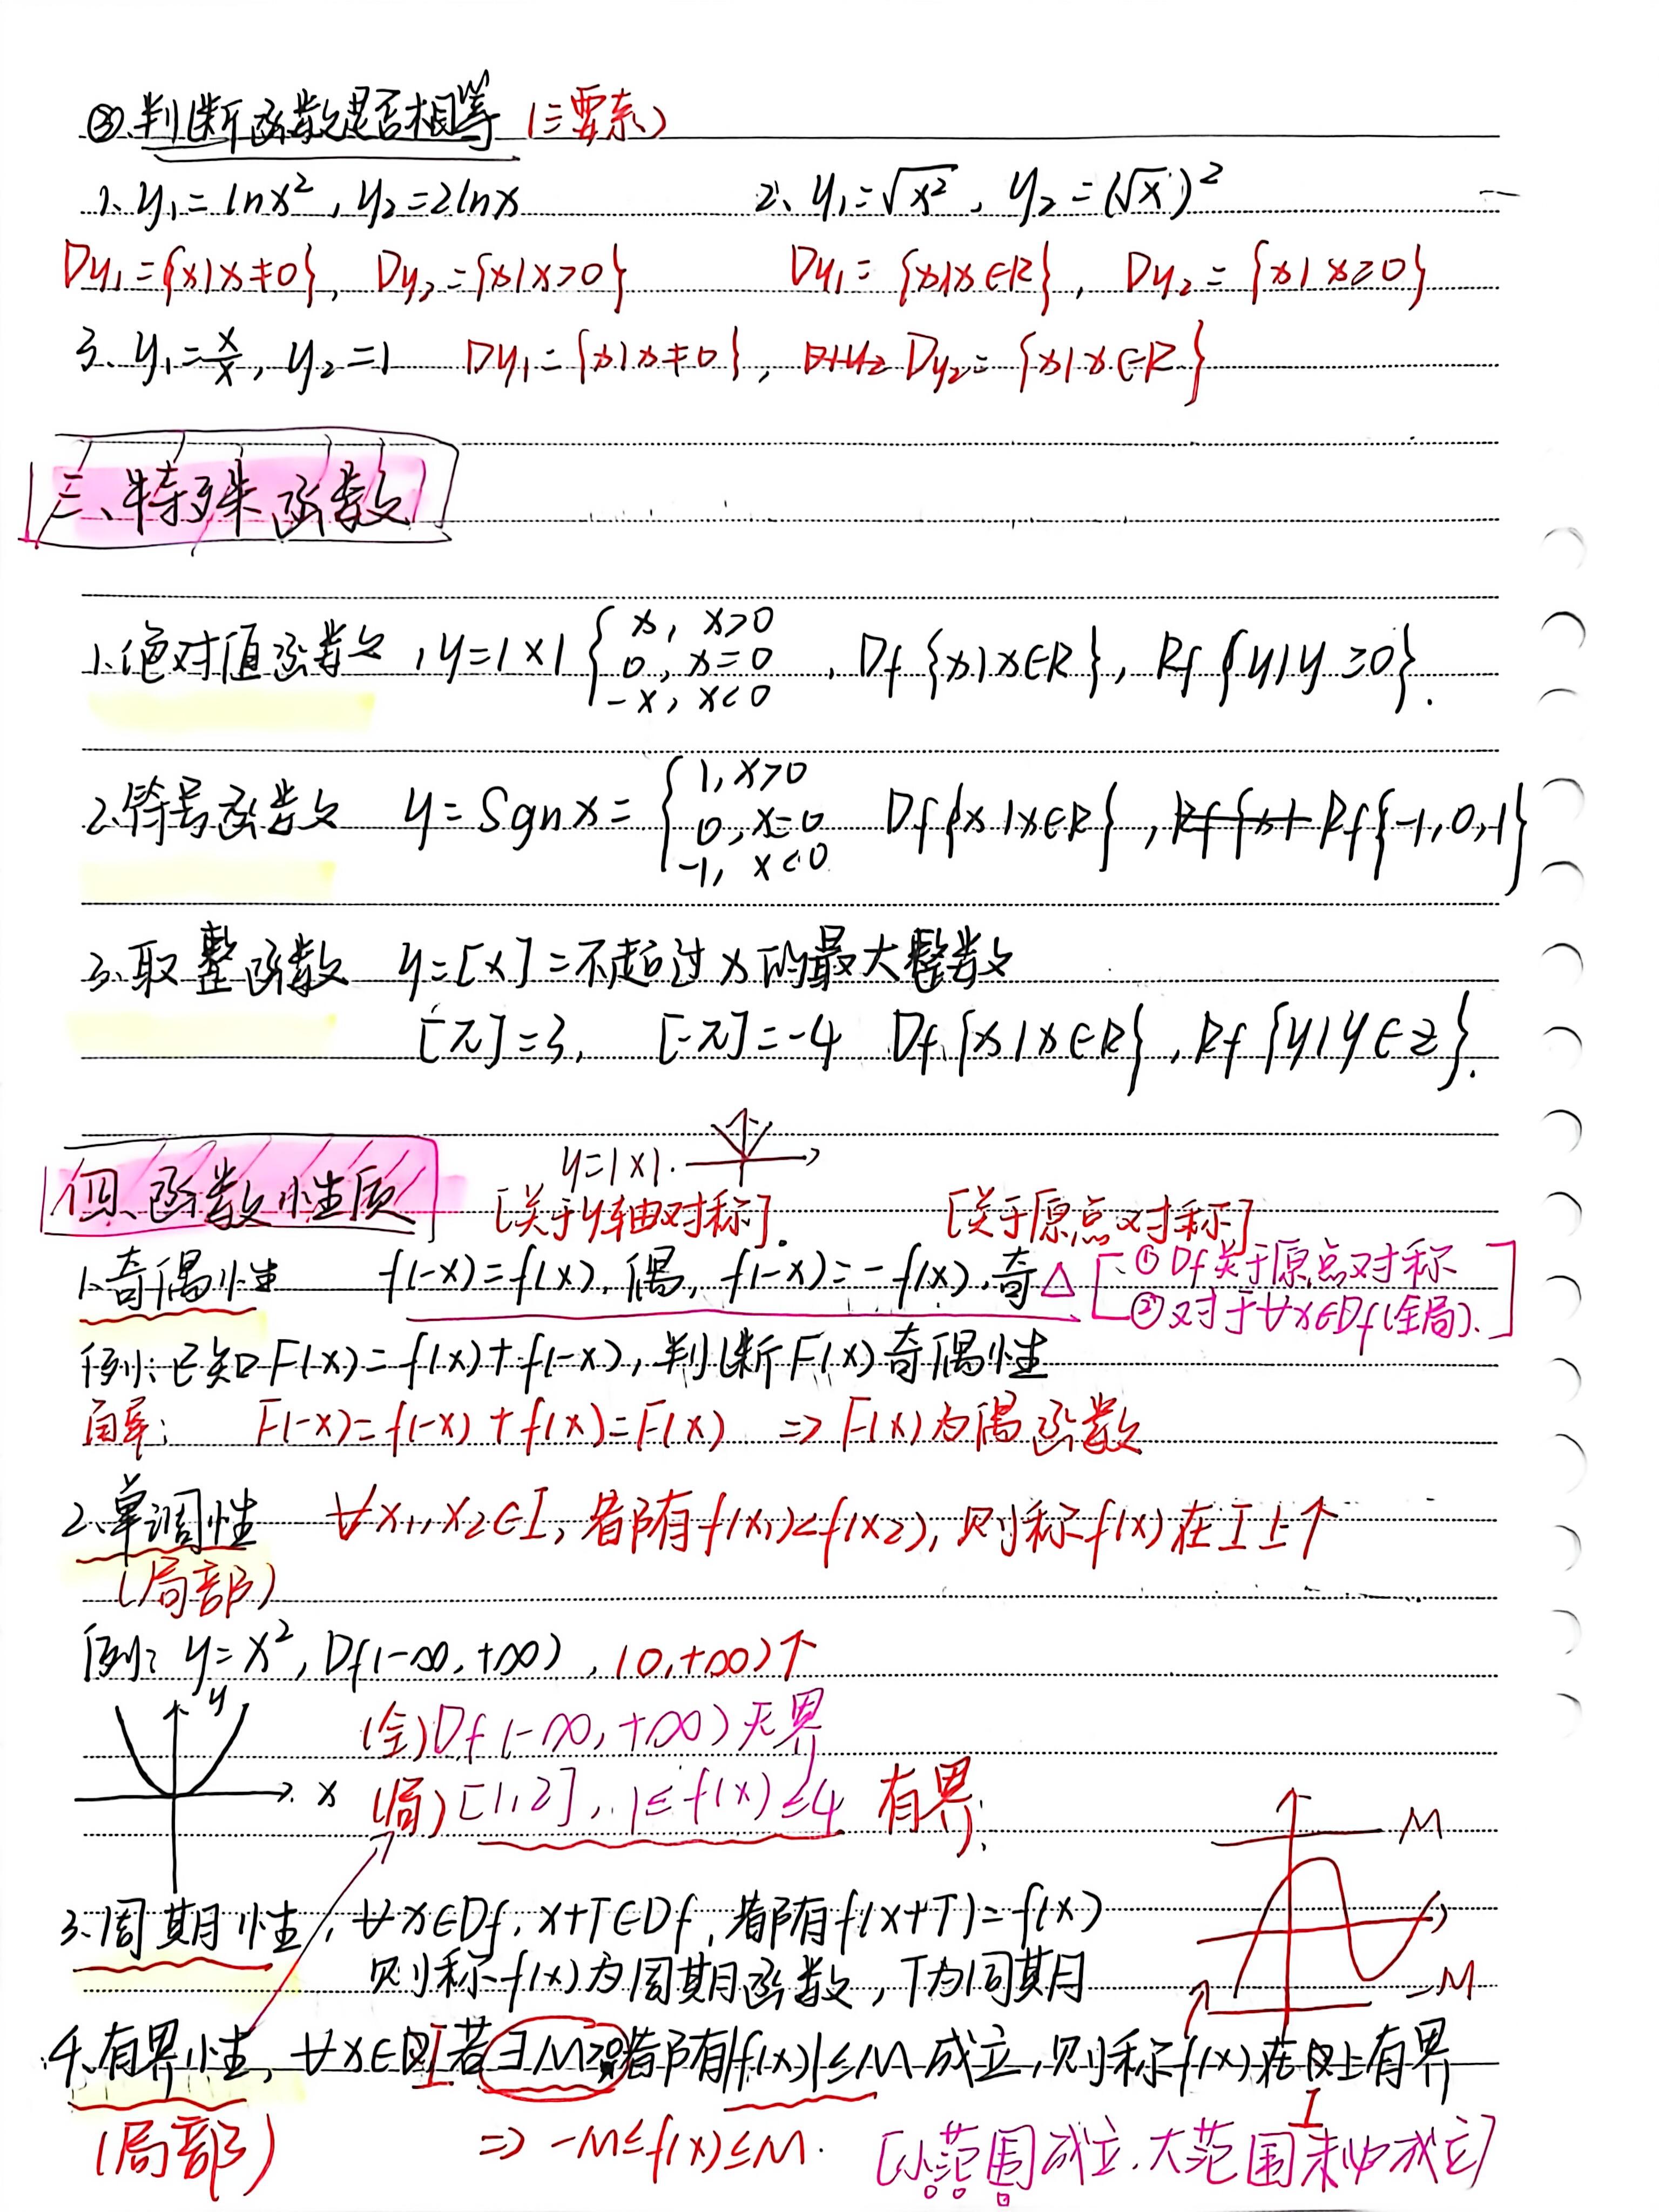 ②.判断函数是否相等(三要素)
1、y₁=lnx²,y₂=2lnx 2、y₁=√x²,y₂=(√x)²
Dy₁={x|x≠0},Dy₂={x|x>0} Dy₁={x|x∈R},Dy₂={x|x≥0}
3、y₁=x/x,y₂=1 Dy₁={x|x≠0},Dy₂={x|x∈R}
三、特殊函数
1、绝对值函数,y=|x|{x,x>0
0,x=0
-x,x<0 ,Df{x|x∈R},Rf{y|y≥0}.
2、符号函数 y=Sgnx={1,x>0
0,x=0
-1,x<0 Df{x|x∈R},Rf{-1,0,1}
3、取整函数 y=[x]=不超过x的最大整数
[π]=3, [-π]=-4 Df{x|x∈R},Rf{y|y∈Z}.
y=|x|.
四、函数性质 [关于y轴对称]. [关于原点对称]
1、奇偶性 f(-x)=f(x),偶,f(-x)=-f(x),奇△[①Df关于原点对称
②对于∀x∈Df(全局).]
例:已知F(x)=f(x)+f(-x),判断F(x)奇偶性
解: F(-x)=f(-x)+f(x)=F(x) ⇒F(x)为偶函数
2、单调性 ∀x₁,x₂∈I,都有f(x₁)<f(x₂),则称f(x)在I上↑
(局部)
例:y=x²,Df(-∞,+∞),(0,+∞)↑
y
(全)Df(-∞,+∞)无界
x (局)[1,2],1≤f(x)≤4 有界.
M
3、周期性,∀x∈Df,x+T∈Df,都有f(x+T)=f(x)
则称f(x)为周期函数,T为周期
-M
4、有界性,∀x∈I若∃M>0都有|f(x)|≤M成立,则称f(x)在I上有界
(局部) ⇒-M≤f(x)≤M. [小范围成立,大范围未必成立]